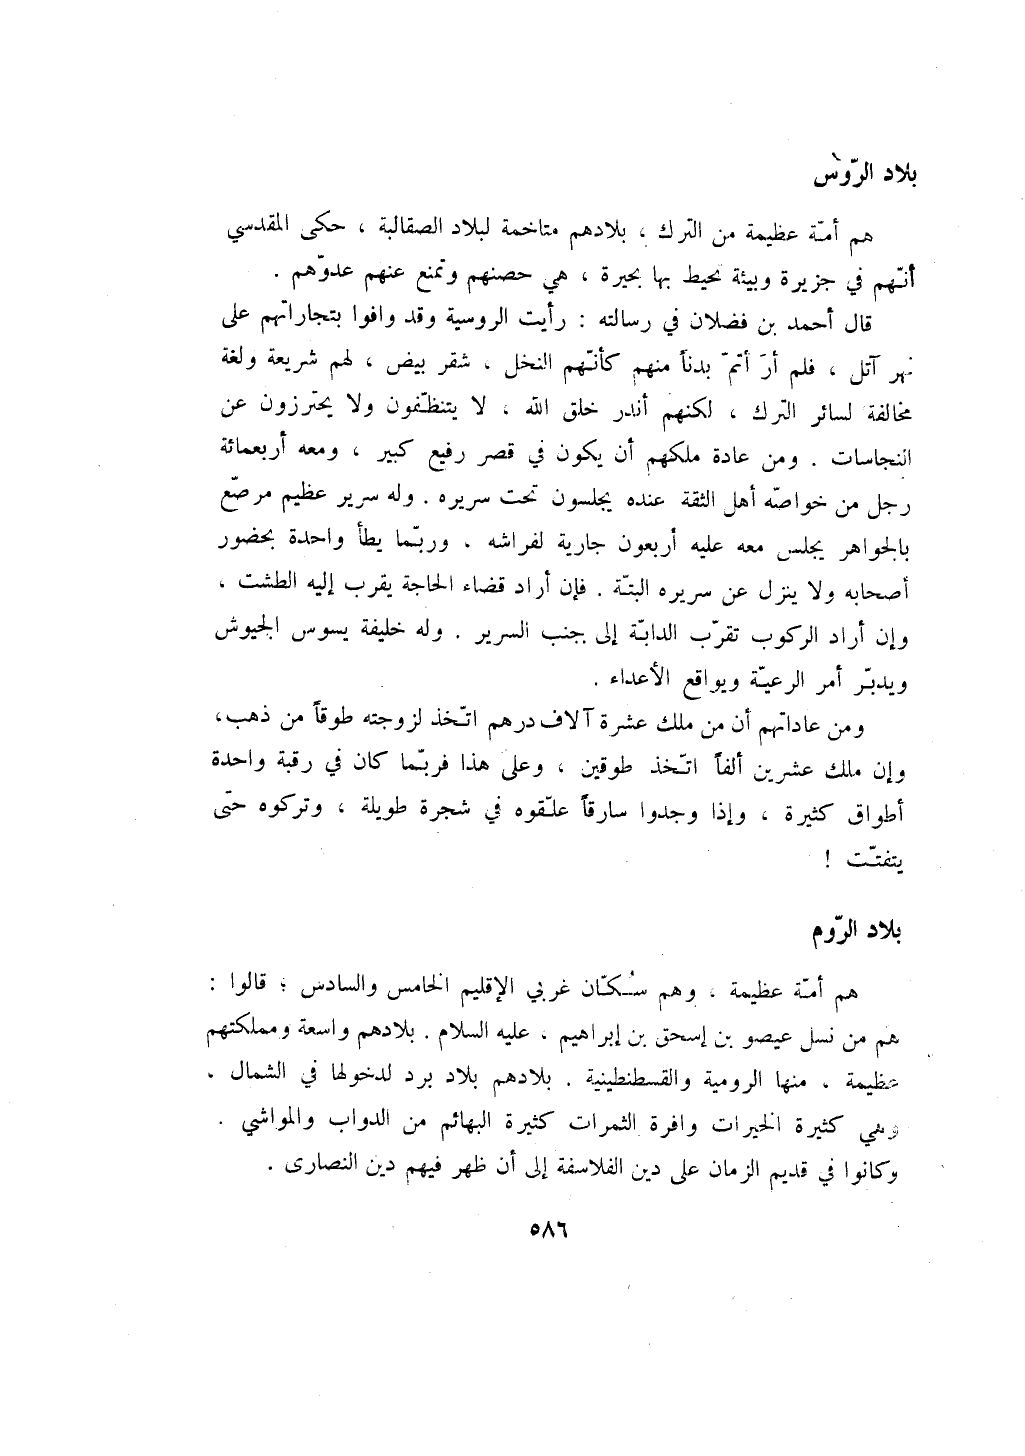 بلاد الرّوس
هم أمّة عظيمة من الترك ، بلادهم متاخمة لبلاد الصقالبة ، حكى المقدسي
أنّهم في جزيرة وبيئة تحيط بها بحيرة ، هي حصنهم وتمنع عنهم عدوّهم .
قال أحمد بن فضلان في رسالته : رأيت الروسية وقد وافوا بتجاراتهم على
نهر آتل ، فلم أرَ أتمّ بدناً منهم كأنّهم النخل ، شقر بيض ، لهم شريعة ولغة
مخالفة لسائر الترك ، لكنهم أندر خلق الله ، لا يتنظّفون ولا يحترزون عن
النجاسات . ومن عادة ملكهم أن يكون في قصر رفيع كبير ، ومعه أربعمائة
رجل من خواصّه أهل الثقة عنده يجلسون تحت سريره . وله سرير عظيم مرصّع
بالجواهر يجلس معه عليه أربعون جارية لفراشه ، وربّما يطأ واحدة بحضور
أصحابه ولا ينزل عن سريره البتّة . فإن أراد قضاء الحاجة يقرب إليه الطشت ،
وإن أراد الركوب تقرّب الدابّة إلى جنب السرير . وله خليفة يسوس الجيوش
ويدبّر أمر الرعيّة ويواقع الأعداء .
ومن عاداتهم أن من ملك عشرة آلاف درهم اتّخذ لزوجته طوقاً من ذهب،
وإن ملك عشرين ألفاً اتّخذ طوقين ، وعلى هذا فربّما كان في رقبة واحدة
أطواق كثيرة ، وإذا وجدوا سارقاً علّقوه في شجرة طويلة ، وتركوه حتّى
يتفتّت !
بلاد الرّوم
هم أمّة عظيمة ، وهم سُكّان غربي الإقليم الخامس والسادس ؛ قالوا :
هم من نسل عيصو بن إسحق بن إبراهيم ، عليه السلام . بلادهم واسعة ومملكتهم
عظيمة ، منها الرومية والقسطنطينية . بلادهم بلاد برد لدخولها في الشمال ،
وهي كثيرة الخيرات وافرة الثمرات كثيرة البهائم من الدواب والمواشي .
وكانوا في قديم الزمان على دين الفلاسفة إلى أن ظهر فيهم دين النصارى .
٥٨٦